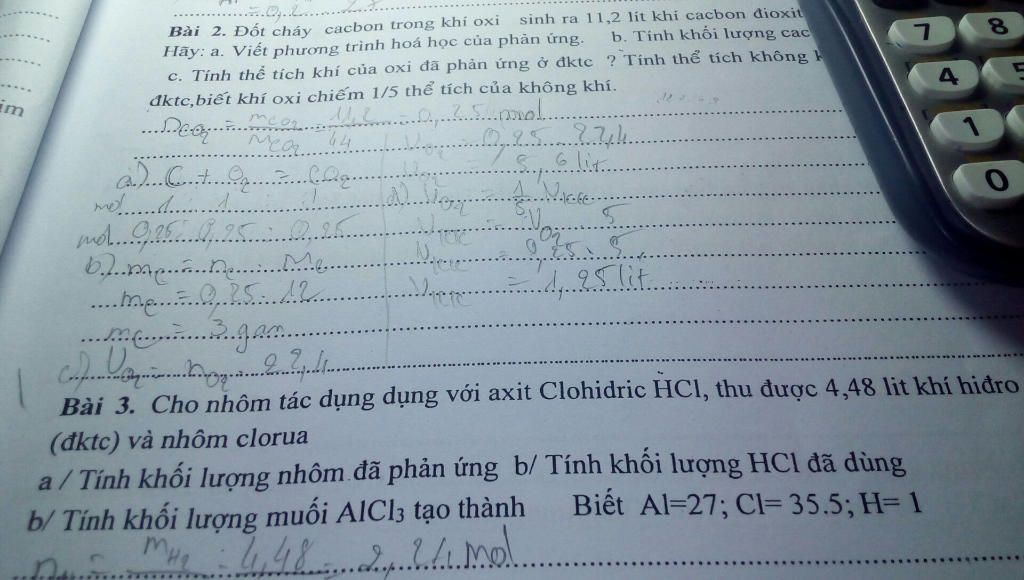 = 0,2
Bài 2. Đốt cháy cacbon trong khí oxi sinh ra 11,2 lít khí cacbon đioxit
Hãy: a. Viết phương trình hoá học của phản ứng. b. Tính khối lượng cac
c. Tính thể tích khí của oxi đã phản ứng ở đktc ? Tính thể tích không k
đktc,biết khí oxi chiếm 1/5 thể tích của không khí.
nCO2 = mCO2/MCO2 = 11,2/44 = 0,25 mol
VO2 = 0,25 . 22,4
= 5,6 lit
a) C + O2 = CO2
mol 1 : 1 : 1
mol 0,25 : 0,25 : 0,25
b) mC = nC . MC
mC = 0,25 . 12
mC = 3 gam
c) VO2 = nO2 . 22,4
d) VO2 = 1/5 VKK
VKK = VO2 . 5
VKK = 0,25 . 5
VKK = 1,25 lit
Bài 3. Cho nhôm tác dụng dụng với axit Clohidric HCl, thu được 4,48 lit khí hiđro
(đktc) và nhôm clorua
a / Tính khối lượng nhôm đã phản ứng b/ Tính khối lượng HCl đã dùng
b/ Tính khối lượng muối AlCl3 tạo thành Biết Al=27; Cl= 35.5; H= 1
mH2 = 4,48 = 2,24 mol
im
7 8
4 5
1
0